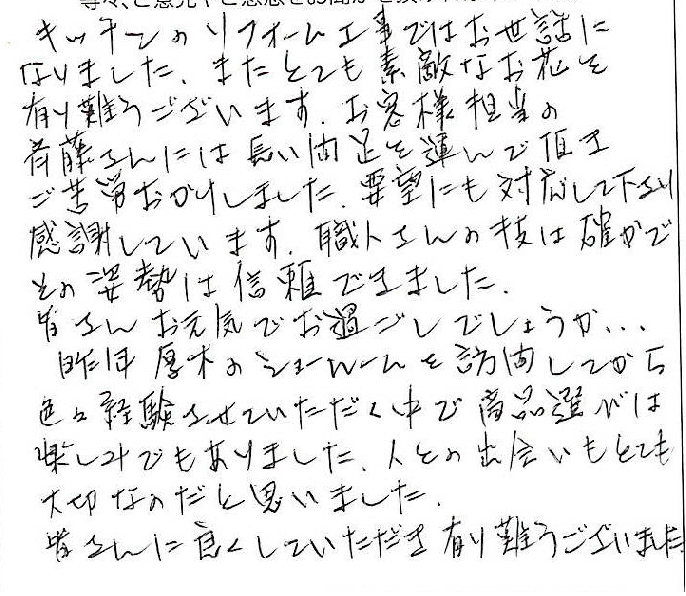 キッチンのリフォーム工事ではお世話に
なりました。またとても素敵なお花を
有り難うございます。お客様担当の
斉藤さんには長い間足を運んで頂き
ご苦労おかけしました。要望にも対応して下さり
感謝しています。職人さんの技は確かで
その姿勢は信頼できました。
皆さんお元気でお過ごしでしょうか...
昨年厚木のショールームを訪問してから
色々経験させていただく中で商品選びは
楽しみでもありました。人との出会いもとても
大切なのだと思いました。
皆さんに良くしていただき有り難うございました